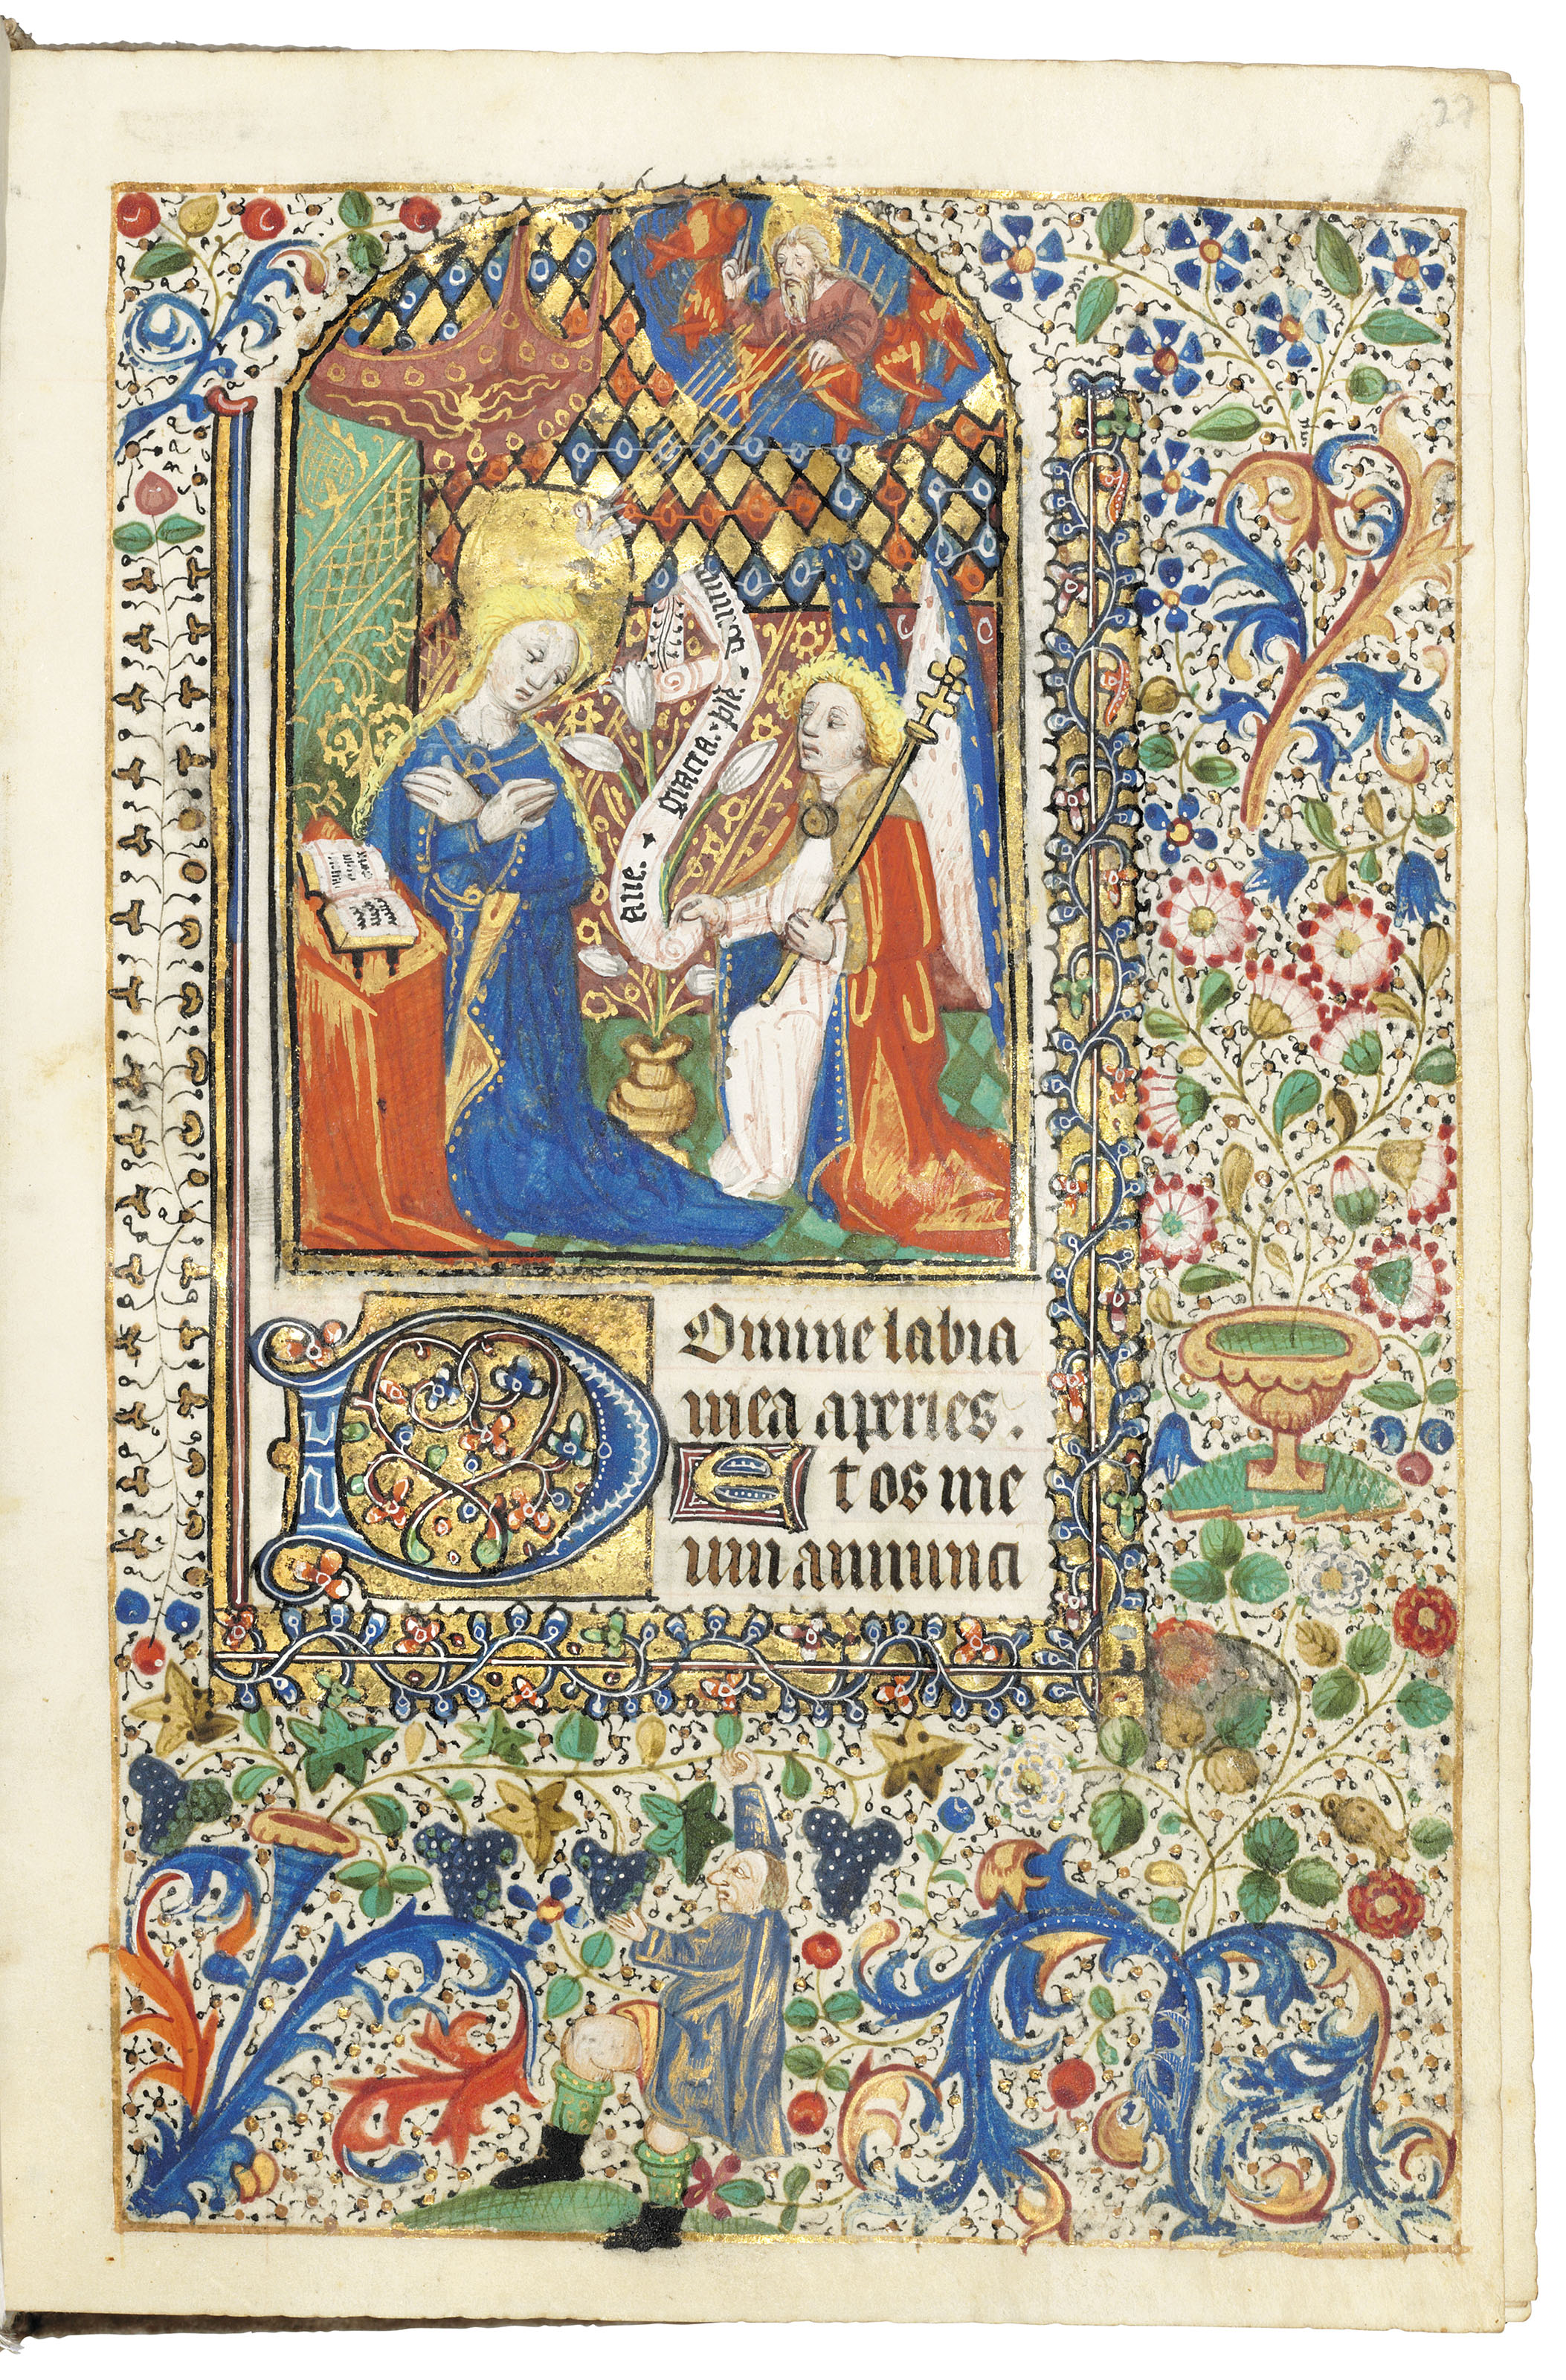 27
Aue. gracia. plē.
DOmine labia
mea aperies.
Et os me
um annunci